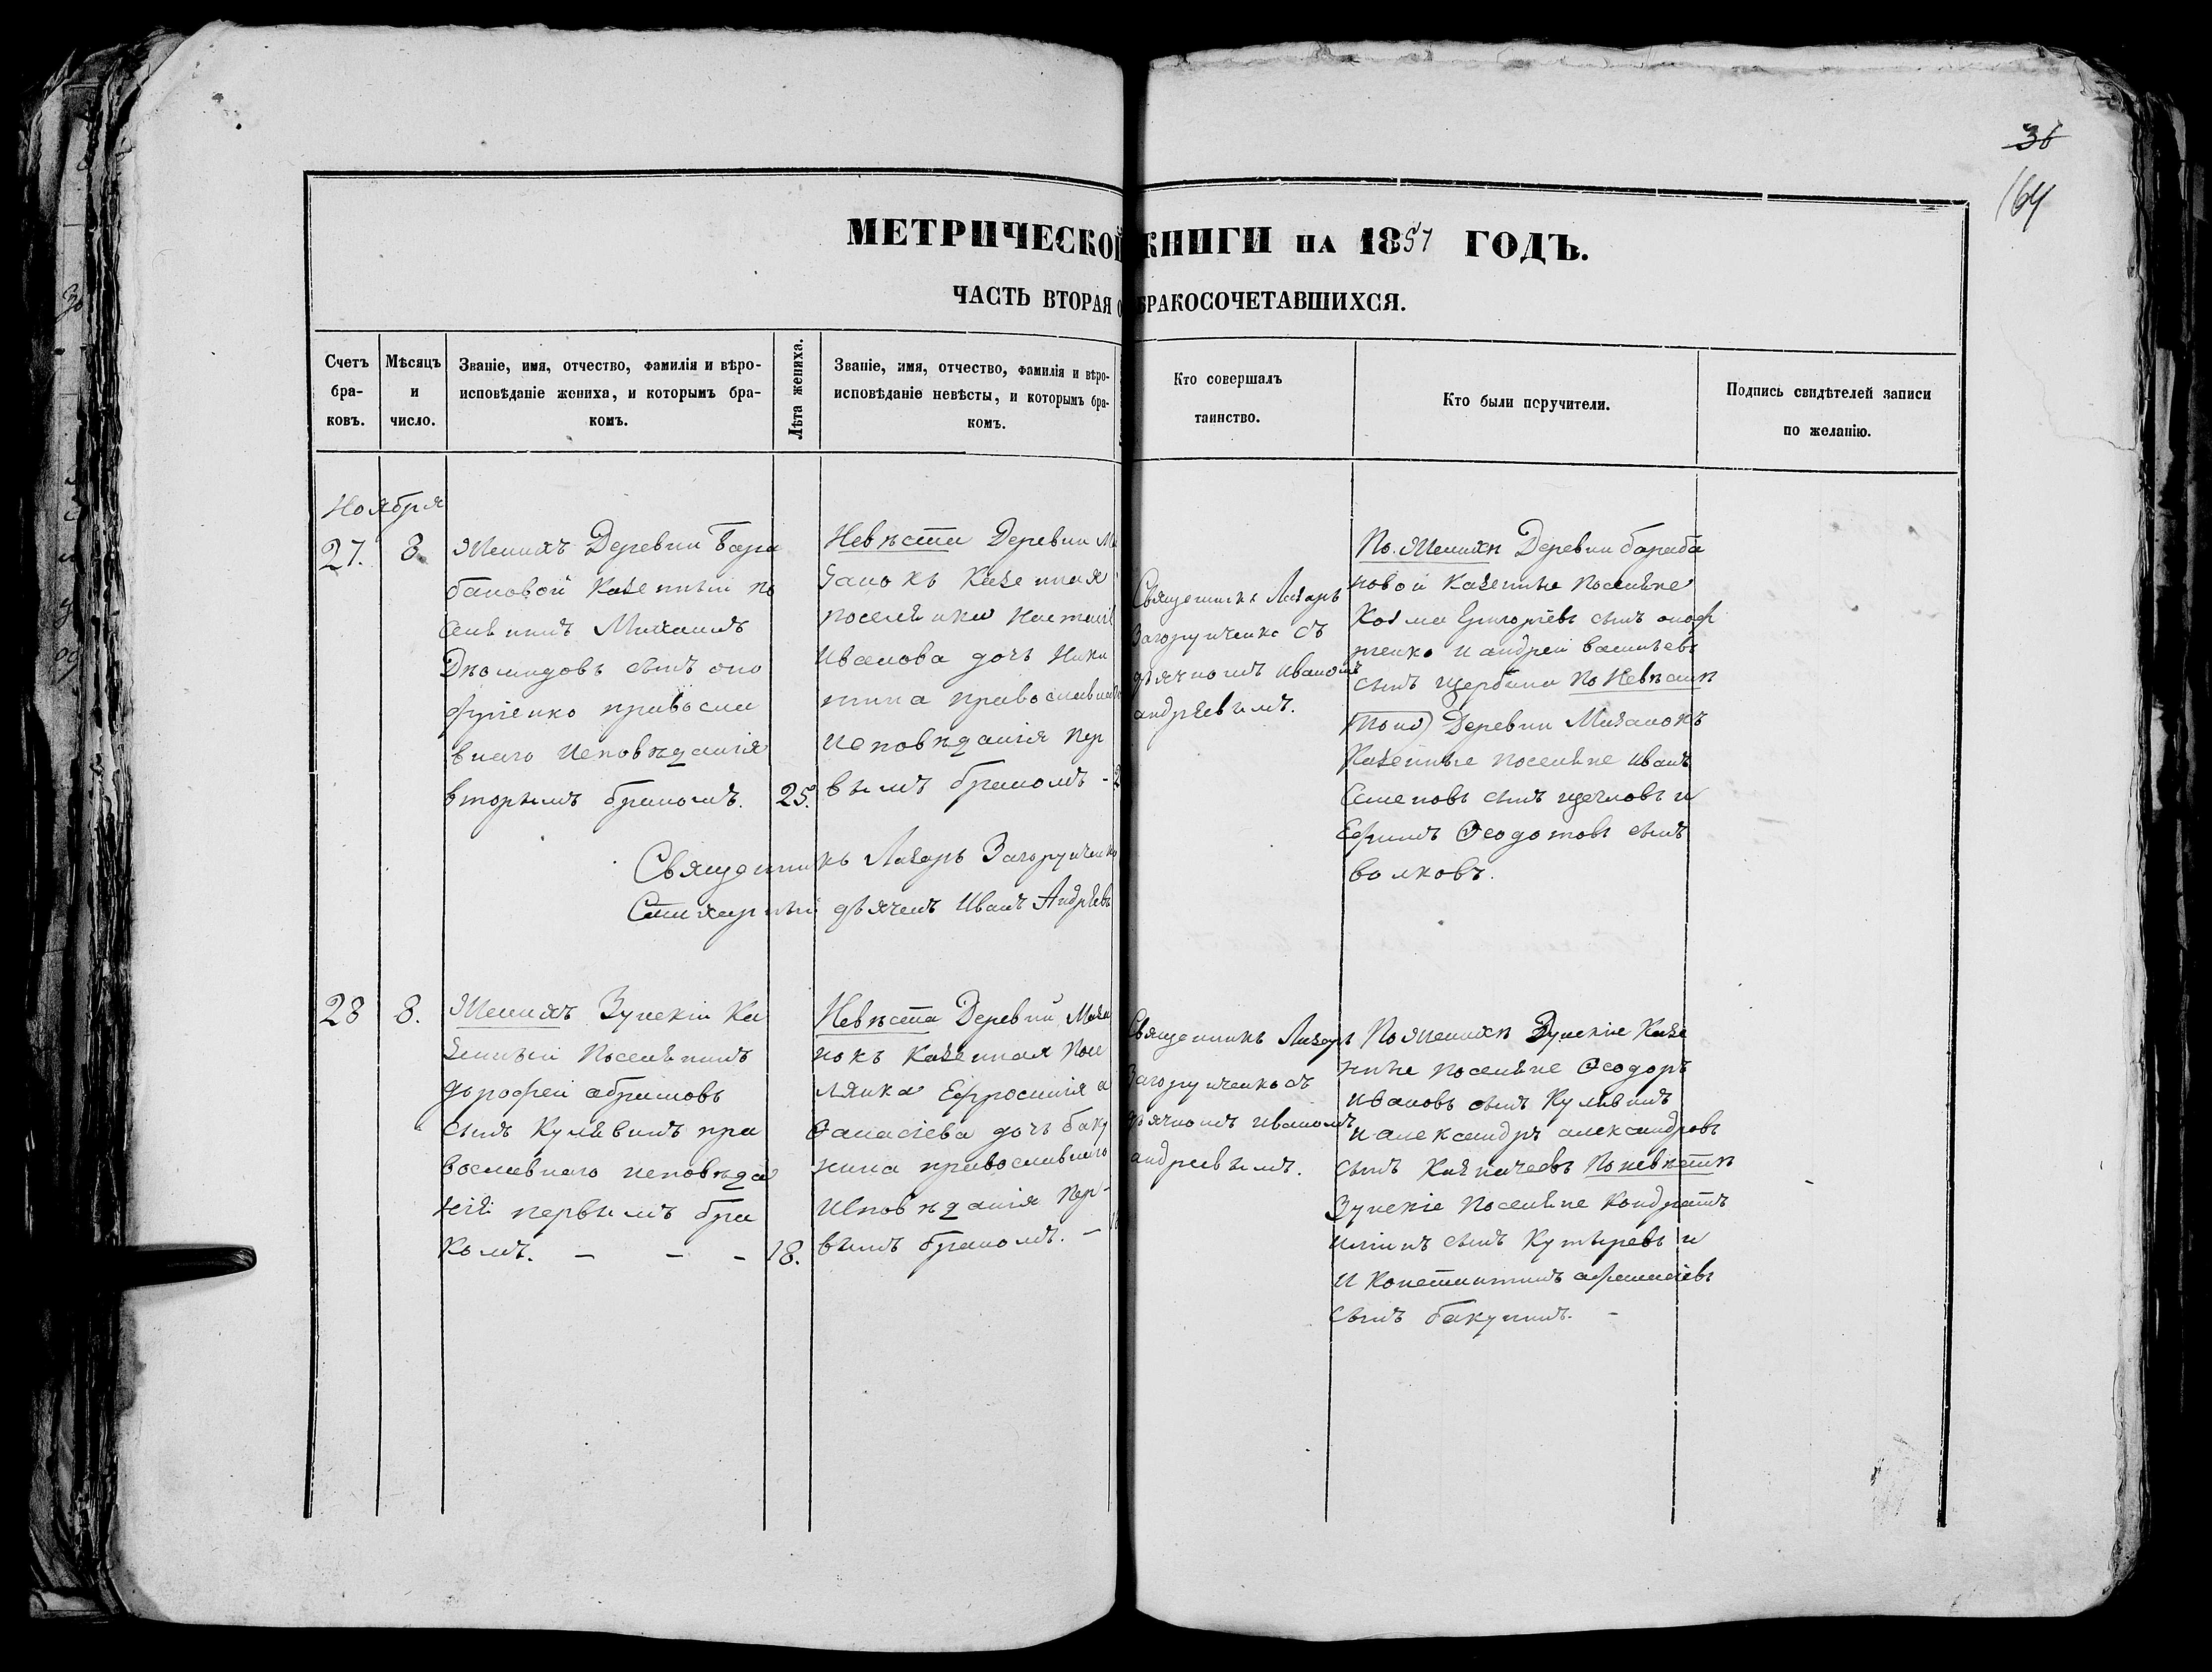 36
164
МЕТРИЧЕСКОЙ КНИГИ НА 1857 ГОДЪ.
ЧАСТЬ ВТОРАЯ О БРАКОСОЧЕТАВШИХСЯ.
Счетъ бра- ковъ.
Мѣсяцъ и число.
Званіе, имя, отчество, фамилія и вѣро-
исповѣданіе жениха, и которымъ бра-
комъ.
Лѣта жениха.
Званіе, имя, отчество, фамилія и вѣро-
исповѣданіе невѣсты, и которымъ бра-
комъ.
Кто совершалъ
таинство.
Кто были поручители.
Подпись свидѣтелей записи
по желанію.
Ноября
27.
8.
Женихъ Деревни Бара
бановой Казенный по
селянинъ Михаилъ
Дiомидовъ сынъ оно
фріенко правосла
внаго исповѣданія
вторымъ бракомъ.
25.
Невѣста Деревни Ми
занокъ Казенная
поселянка Настасія
Иванова дочь Ники
тина православнаго
исповѣданія пер
вымъ бракомъ - 2
Священникъ Лазарь
Загоруйченко съ
дьячкомъ Иваномъ
андрѣевымъ.
По Женихѣ Деревни бараба
новой Казенные поселяне
Козма Григорiевъ сынъ оноф
рiенко и андрей васильевъ
сынъ щербина По Невѣстѣ
Деревни Мизанокъ
Казенные поселяне Иванъ
Семеновъ сынъ щегловъ и
Ефимъ Ѳеодотовъ сынъ
волковъ.
Священникъ Лазарь Загоруйченко
Стихарный дьячекъ Иванъ Андрѣевъ
28
8.
Женихъ Зуйскій Ка
зенный Поселянинъ
дорофей абрамовъ
сынъ Кулѣвинъ пра
вославнаго исповѣда
нія первымъ бра
комъ. - - -
18.
Невѣста Деревни Миза
нокъ Казенная Посе
лянка Ефросинія а
ѳанасіева дочь баку
нина православнаго
исповѣданія пер-
вымъ бракомъ. -
Священникъ Лазарь
Загоруйченко съ
дьячкомъ Иваномъ
андреевымъ.
По Женихѣ Зуйскіе Казе
нные поселяне Ѳеодоръ
Ивановъ сынъ Кулѣвинъ
и александръ александровъ
сынъ Казначеевъ По невѣстѣ
Зуйскіе поселяне Кондратъ
Ильинъ сынъ Кутыревъ и
и Константинъ афанасіевъ
сынъ бакунинъ. -